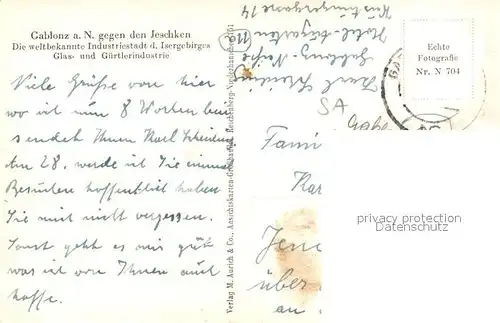 Gablonz a. N. gegen den Jeschken
Die weltbekannte Industriestadt d. Isergebirges
Glas- und Gürtlerindustrie
Viele Grüße von hier
wo ich nun 8 Wochen bin
sendet Ihnen Karl
Am 28. werde ich Sie einmal
Besuchen hoffentlich haben
Sie mich nicht vergessen.
Sonst geht es mir gut
was ich von Ihnen auch
hoffe.
Verlag M. Aurich & Co., Ansichtskarten-Großhandel, Reichenberg
Karl
Gablonz-Neiße
SA
Echte
Fotografie
Nr. N 704
Fami
Har
Jen
über
an
privacy protection
Datenschutz